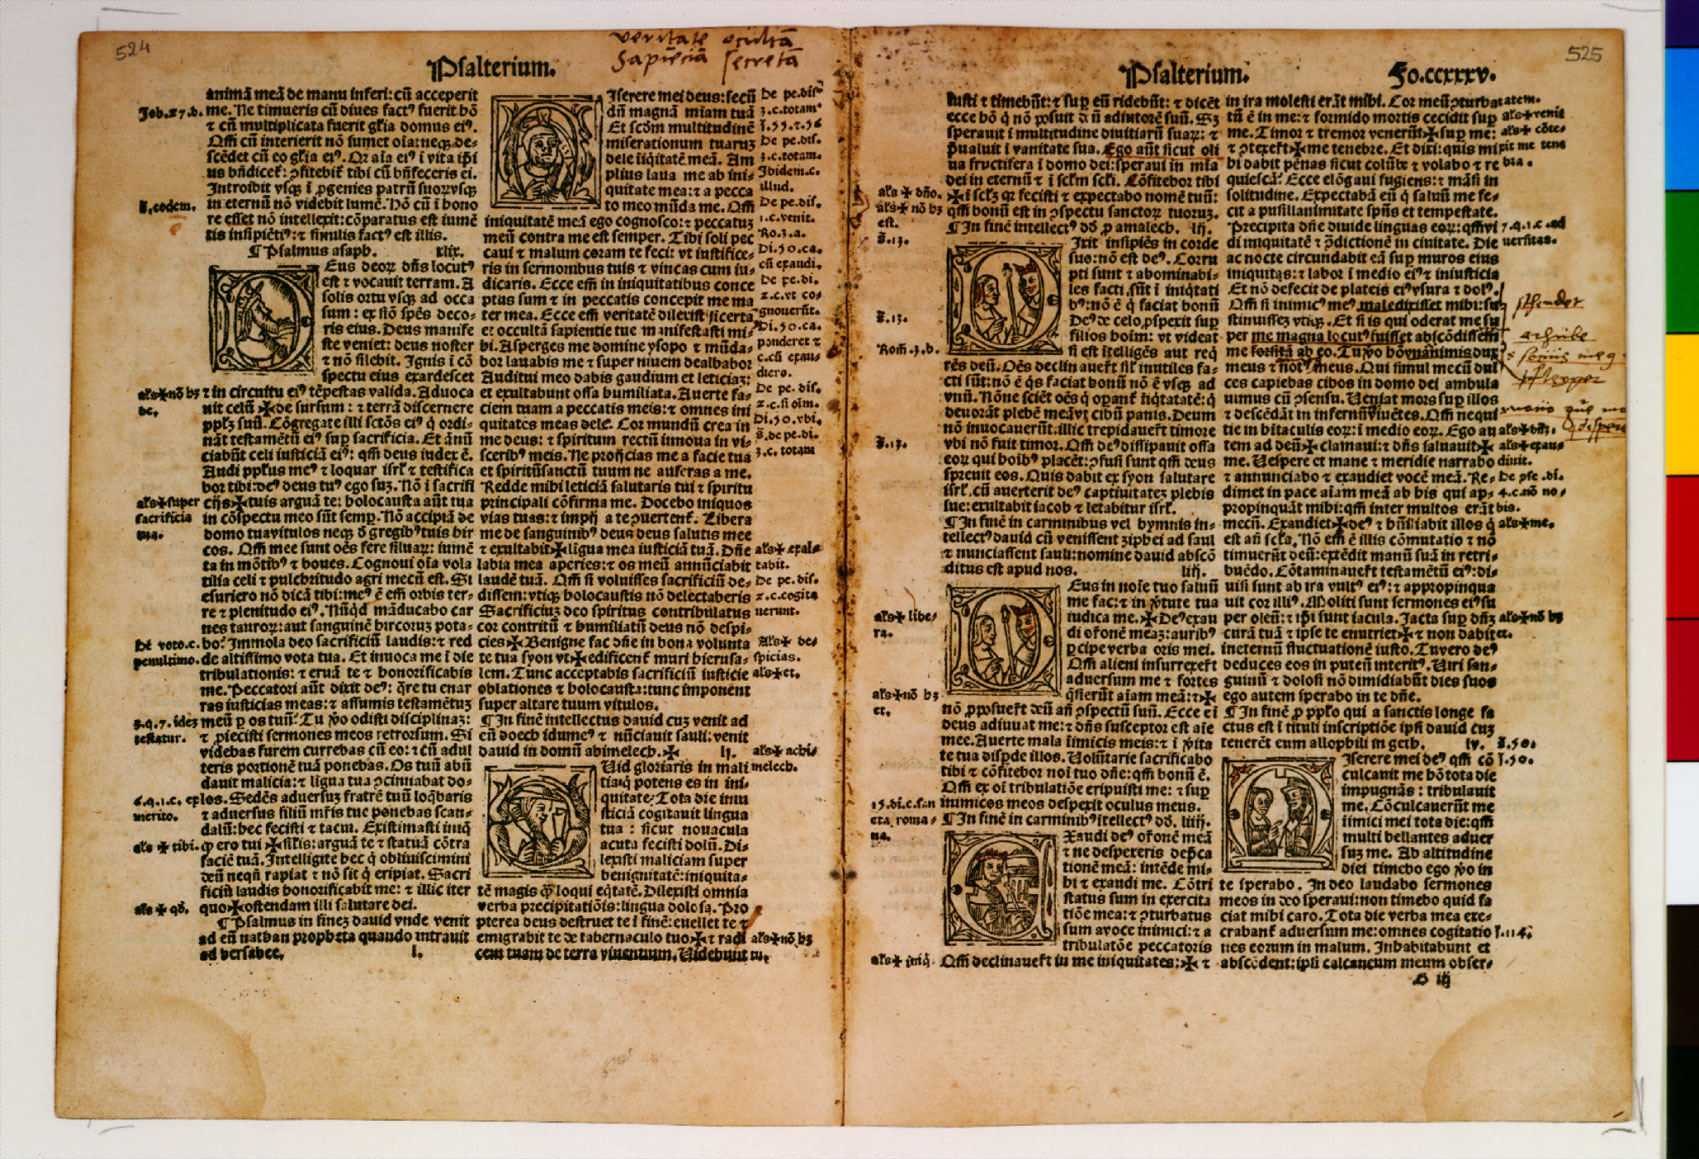 524
veritate occultā
Sapiēciā secretā
Psalterium.
animā meā de manu inferi: cū acceperit
me. Ne timueris cū diues fact⁹ fuerit hō
⁊ cū multiplicata fuerit gl̄ia domus ei⁹.
Qm̄ cū interierit nō sumet oīa: neqȝ de-
scēdet cū eo gl̄ia ei⁹. Qr aīa ei⁹ ī vita ip̄i
us bn̄dicet᷑: ꝯfitebit᷑ tibi cū bn̄feceris ei.
Introibit vsqȝ ī ꝓgenies patrū suoꝝ vsqȝ
in eternū nō videbit lumē. Nō cū ī hono
re esset nō intellexit: cōparatus est iumē
tis insipiētib⁹: ⁊ similis fact⁹ est illis.
¶ Psalmus asaph. xlix.
DEus deoꝝ dn̄s locut⁹
est ⁊ vocauit terram. A
solis ortu vsqȝ ad occa
sum: ex siō spēs deco-
ris eius. Deus manife
ste veniet: deus noster
⁊ nō silebit. Ignis ī cō
spectu eius exardescet
⁊ in circuitu ei⁹ tēpestas valida. Aduoca
uit celū ✠ de sursum: ⁊ terrā discernere
pplȝ suū. Cōgregate illi sctōs ei⁹ q̇ ordi-
nāt testamētū ei⁹ sup sacrificia. Et ānū
ciabūt celi iusticiā ei⁹: qm̄ deus iudex ē.
Audi pplus me⁹ ⁊ loquar isrl̄ ⁊ testifica
bor tibi: de⁹ deus tu⁹ ego suȝ. Nō ī sacrifi
cijs ✠ tuis arguā te: holocausta aūt tua
in cōspectu meo sūt semp. Nō accipiā de
domo tua vitulos neqȝ ð gregib⁹ tuis hir
cos. Qm̄ mee sunt oēs fere siluaꝝ: iumē
ta in mōtib⁹ ⁊ boues. Cognoui oīa vola
tilia celi ⁊ pulchritudo agri mecū est. Si
esuriero nō dicā tibi: me⁹ ē em̄ orbis ter-
re ⁊ plenitudo ei⁹. Nūqd māducabo car
nes tauroꝝ: aut sanguinē hircorum pota-
bo? Immola deo sacrificiū laudis: ⁊ red
de altissimo vota tua. Et inuoca me ī die
tribulationis: ⁊ eruā te ⁊ honorificabis
me. Peccatori aūt dixit de⁹: q̄re tu enar
ras iusticias meas: ⁊ assumis testamētuȝ
meū p os tuū? Tu v̊o odisti disciplinaȝ:
⁊ piecisti sermones meos retrorsum. Si
videbas furem currebas cū eo: ⁊ cū adul
teris portionē tuā ponebas. Os tuū abū
dauit malicia: ⁊ līgua tua ꝯcinnabat do-
los. Sedēs aduersuȝ fratrē tuū loq̄baris
⁊ aduersus filiū mr̄is tue ponebas scan-
dalū: hec fecisti ⁊ tacui. Existimasti iniq̄
q̄ ero tui ✠ sil̄is: arguā te ⁊ statuā cōtra
faciē tuā. Intelligite hec q̇ obliuiscimini
deū neqn̄ rapiat ⁊ nō sit q̇ eripiat. Sacri
ficiū laudis honorificabit me: ⁊ illic iter
quo ✠ ostendam illi salutare dei.
¶ Psalmus in finez dauid vnde venit
ad eū nathan propheta quando intrauit
ad bersabee. l.
Job.27.b.
ð. eodem.
al̄s ✠ nō hȝ
hc.
al̄s ✠ super
sacrificia
tua.
De voto.c.
penultimo.
3.q.7. idez
testatur.
6.q.1.c. ex
merito.
al̄s ✠ tibi.
al̄s ✠ qð.
MIserere mei deus: secū
dū magnā miam tuā
Et scd̄m multitudinē
miserationum tuaruȝ
dele īiq̄tatē meā. Am
plius laua me ab ini-
quitate mea: ⁊ a pecca
to meo mūda me. Qm̄
iniquitatē meā ego cognosco: ⁊ peccatuȝ
meū contra me est semper. Tibi soli pec
caui ⁊ malum coram te feci: vt iustifice-
ris in sermonibus tuis ⁊ vincas cum iu-
dicaris. Ecce em̄ in iniquitatibus conce
ptus sum ⁊ in peccatis concepit me ma
ter mea. Ecce em̄ veritatē dilexisti: īcerta
et occultā sapientie tue manifestasti mi-
bi. Asperges me domine ysopo ⁊ mūda-
bor lauabis me ⁊ super niuem dealbabor
Auditui meo dabis gaudium et leticiaȝ:
et exultabunt ossa humiliata. Auerte fa-
ciem tuam a peccatis meis: ⁊ omnes ini
quitates meas dele. Cor mundū crea in
me deus: ⁊ spiritum rectū innoua in vi-
scerib⁹ meis. Ne proijcias me a facie tua
et spiritūsanctū tuum ne auferas a me.
Redde mihi leticiā salutaris tui ⁊ spiritu
principali cōfirma me. Docebo iniquos
vias tuas: ⁊ impij a te ꝯuertent᷑. Libera
me de sanguinib⁹ deus deus salutis mee
⁊ exultabit ✠ līgua mea iusticiā tuā. Dn̄e
labia mea aperies: ⁊ os meū annūciabit
laudē tuā. Qm̄ si voluisses sacrificiū de-
dissem: vtiqȝ holocaustis nō delectaberis
Sacrificiuȝ deo spiritus contribulatus
cor contritū ⁊ humiliatū deus nō despi-
cies ✠ Benigne fac dn̄e in bona volunta
te tua syon vt ✠ edificent᷑ muri hierusa-
lem. Tunc acceptabis sacrificiū iusticie
oblationes ⁊ holocausta: tunc imponent
super altare tuum vitulos.
¶ In finē intellectus dauid cuȝ venit ad
eū doech idume⁹ ⁊ nūciauit sauli: venit
dauid in domū abimelech. ✠ lj.
QUid gloriaris in mali
tia: q̇ potens es in ini-
quitate? Tota die iniu
sticiā cogitauit lingua
tua: sicut nouacula
acuta fecisti dolū. Di-
lexisti maliciam super
benignitatē: iniquita-
tē magis q̄ȝ loqui eq̄tatē. Dilexisti omnia
verba precipitatiōis: lingua dolosa. Pro
pterea deus destruet te ī finē: euellet te ⁊
emigrabit te de tabernaculo tuo ✠ ⁊ radi
cem tuam de terra viuentium. Uidebunt iu.
De pe. dis.
3.c. totam
De pe. dis.
3.c. totam.
Ibidem.c.
illud.
De pe. dis.
1.c. venit.
Ro.3.a.
Di.50.ca.
cū exaudi.
De pe. di.
2.c. vt co-
gnouerūt.
Di.50.ca.
ponderet ⁊
c. cū exau-
diero.
De pe. dis.
2.c. si olm̄.
Di.50. vbi.
ð. de pe. di.
3.c. totam
al̄s ✠ exal-
tabit.
De pe. dis.
2.c. cogita
uerunt.
Al̄s ✠ de-
spicias.
al̄s ✠ et.
al̄s ✠ achi-
melech.
al̄s ✠ nō hȝ
525
Psalterium. Fo.ccxxxv.
iusti ⁊ timebūt: ⁊ sup eū ridebūt: ⁊ dicēt
ecce hō q̇ nō posuit deū adiutorē suū. Sȝ
sperauit ī multitudine diuitiarū suaꝝ: ⁊
p̄ualuit ī vanitate sua. Ego aūt sicut oli
ua fructifera ī domo dei: speraui in mīa
dei in eternū ⁊ ī seclm̄ secli. Cōfitebor tibi
✠ ī seclȝ qr fecisti ⁊ expectabo nomē tuū:
qm̄ bonū est in ꝯspectu sanctoꝝ tuoruȝ.
¶ In finē intellect⁹ dd̄ ꝓ amalech. lij.
DIxit insipiēs in corde
suo: nō est de⁹. Corru
pti sunt ⁊ abominabi-
les facti sūt ī iniq̄tati
b⁹: nō ē q̇ faciat bonū
De⁹ de celo ꝓspexit sup
filios hoīm: vt videat
si est ītelligēs aut req̄
rēs deū. Oēs declinauer̄t sil̄ inutiles fa-
cti sūt: nō ē q̇s faciat bonū nō ē vsqȝ ad
vnū. Nōne sciēt oēs q̇ opant᷑ īiq̄tatē: q̇
deuorāt plebē meā vt cibū panis. Deum
nō inuocauerūt: illic trepidauer̄t timore
vbi nō fuit timor. Qm̄ de⁹ dissipauit ossa
eoꝝ qui hoīb⁹ placēt: ꝯfusi sunt qm̄ deus
spreuit eos. Quis dabit ex syon salutare
isrl̄. cū auerterit de⁹ captiuitatez plebis
sue: exultabit iacob ⁊ letabitur isrl̄.
¶ In finē in carminibus vel hymnis in-
tellect⁹ dauid cū venissent ziphei ad saul
⁊ nunciassent sauli: nomine dauid abscō
ditus est apud nos. liij.
DEus in noīe tuo saluū
me fac: ⁊ in v̇tute tua
iudica me. ✠ De⁹ exau
di orōnē meaȝ: aurib⁹
pcipe verba oris mei.
Qm̄ alieni insurrexer̄t
aduersum me ⁊ fortes
q̄sierūt aīam meā: ⁊ ✠
nō ꝓposuer̄t deū an̄ ꝯspectū suū. Ecce ei
deus adiuuat me: ⁊ dn̄s susceptor est aīe
mee. Auerte mala īimicis meis: ⁊ ī v̇ita
te tua disꝑde illos. Uolūtarie sacrificabo
tibi ⁊ cōfitebor noī tuo dn̄e: qm̄ bonū ē.
Qm̄ ex oī tribulatiōe eripuisti me: ⁊ sup
inimicos meos despexit oculus meus.
¶ In finē in carminib⁹ ītellect⁹ dd̄. liiij.
EXaudi de⁹ orōnē meā
⁊ ne despexeris dep̄ca
tionē meā: intēde mi-
hi ⁊ exaudi me. Cōtri
status sum in exercita
tiōe mea: ⁊ ꝯturbatus
sum a voce inimici: ⁊ a
tribulatōe peccatoris
Qm̄ declinauer̄t in me iniquitates: ✠ ⁊
al̄s ✠ dn̄o.
al̄s ✠ nō hȝ
est.
ð.13.
ð.13.
Rom̄.3.b.
ð.13.
al̄s ✠ libe-
ra.
al̄s ✠ nō hȝ
et.
15.di.c. san
cta roma-
na.
al̄s ✠ iniq̄.
in ira molesti erāt mihi. Cor meū ꝯturba
tū ē in me: ⁊ formido mortis cecidit sup
me. Timor ⁊ tremor venerūt ✠ sup me:
⁊ ꝯtexer̄t ✠ me tenebre. Et dixi: quis mi
hi dabit pēnas sicut colūbe ⁊ volabo ⁊ re
quiescā? Ecce elōgaui fugiens: ⁊ māsi in
solitudine. Expectabā eū q̇ saluū me fe-
cit a pusillanimitate spūs et tempestate.
Precipita dn̄e diuide linguas eoꝝ: qm̄ vi
di iniquitatē ⁊ ꝯ̄dictionē in ciuitate. Die
ac nocte circundabit eā sup muros eius
iniquitas: ⁊ labor ī medio ei⁹ ⁊ iniusticia
Et nō defecit de plateis ei⁹ vsura ⁊ dol⁹.
Qm̄ si inimic⁹ me⁹ maledixisset mihi: su
stinuissez vtiqȝ. Et si is qui oderat me su
per me magna locut⁹ fuisset abscōdissem
me forsitā ab eo. Tu v̊o hō vnanimis dux
meus ⁊ not⁹ meus. Qui simul mecū dul
ces capiebas cibos in domo dei ambula
uimus cū ꝯsensu. Ueniat mors sup illos
⁊ descēdāt in infernū viuētes. Qm̄ nequi
tie in bitaculis eoꝝ: ī medio eoꝝ. Ego au
tem ad deū ✠ clamaui: ⁊ dn̄s saluauit ✠
me. Uespere et mane ⁊ meridie narrabo
⁊ annunciabo ⁊ exaudiet vocē meā. Re-
dimet in pace aīam meā ab his qui ap-
propinquāt mihi: qm̄ inter multos erāt
mecū. Exaudiet ✠ de⁹ ⁊ hūiliabit illos q̇
est an̄ secla. Nō em̄ ē illis cōmutatio ⁊ nō
timuerūt deū: extēdit manū suā in retri-
buēdo. Cōtaminauer̄t testamētū ei⁹: di-
uisi sunt ab ira vult⁹ ei⁹: ⁊ appropinqua
uit cor illi⁹. Moliti sunt sermones ei⁹ su
per oleū: ⁊ ip̄i sunt iacula. Iacta sup dn̄ȝ
curā tuā ⁊ ipse te enutriet ✠ ⁊ non dabit
in eternū fluctuationē iusto. Tu vero de⁹
deduces eos in puteū interit⁹. Uiri san-
guinū ⁊ dolosi nō dimidiabūt dies suos
ego autem sperabo in te dn̄e.
¶ In finē ꝓ pplo qui a sanctis longe fa
ctus est ī tituli inscriptiōe ip̄i dauid cuȝ
tenerēt eum allophili in geth. lv.
MIserere mei de⁹ qm̄ cō
culcauit me hō tota die
impugnās: tribulauit
me. Cōculcauerūt me
īimici mei tota die: qm̄
multi bellantes aduer
suȝ me. Ab altitudine
diei timebo ego v̊o in
te sperabo. In deo laudabo sermones
meos in deo speraui: non timebo quid fa
ciat mihi caro. Tota die verba mea exe-
crabant᷑ aduersum me: omnes cogitatio
nes eorum in malum. Inhabitabunt et
abscōdent: ip̄i calcaneum meum obser-
G iij
atem.
al̄s ✠ venit
al̄s ✠ cōte-
xit me tene
bra.
7.q.1.c. ad
uersitas.
al̄s ✠ dn̄ȝ.
al̄s ✠ exau-
diuit.
De pse. di.
4.c. nō no-
bis.
al̄s ✠ me.
al̄s ✠ nō hȝ
et.
ð.50.
ð.50.
ð.114.